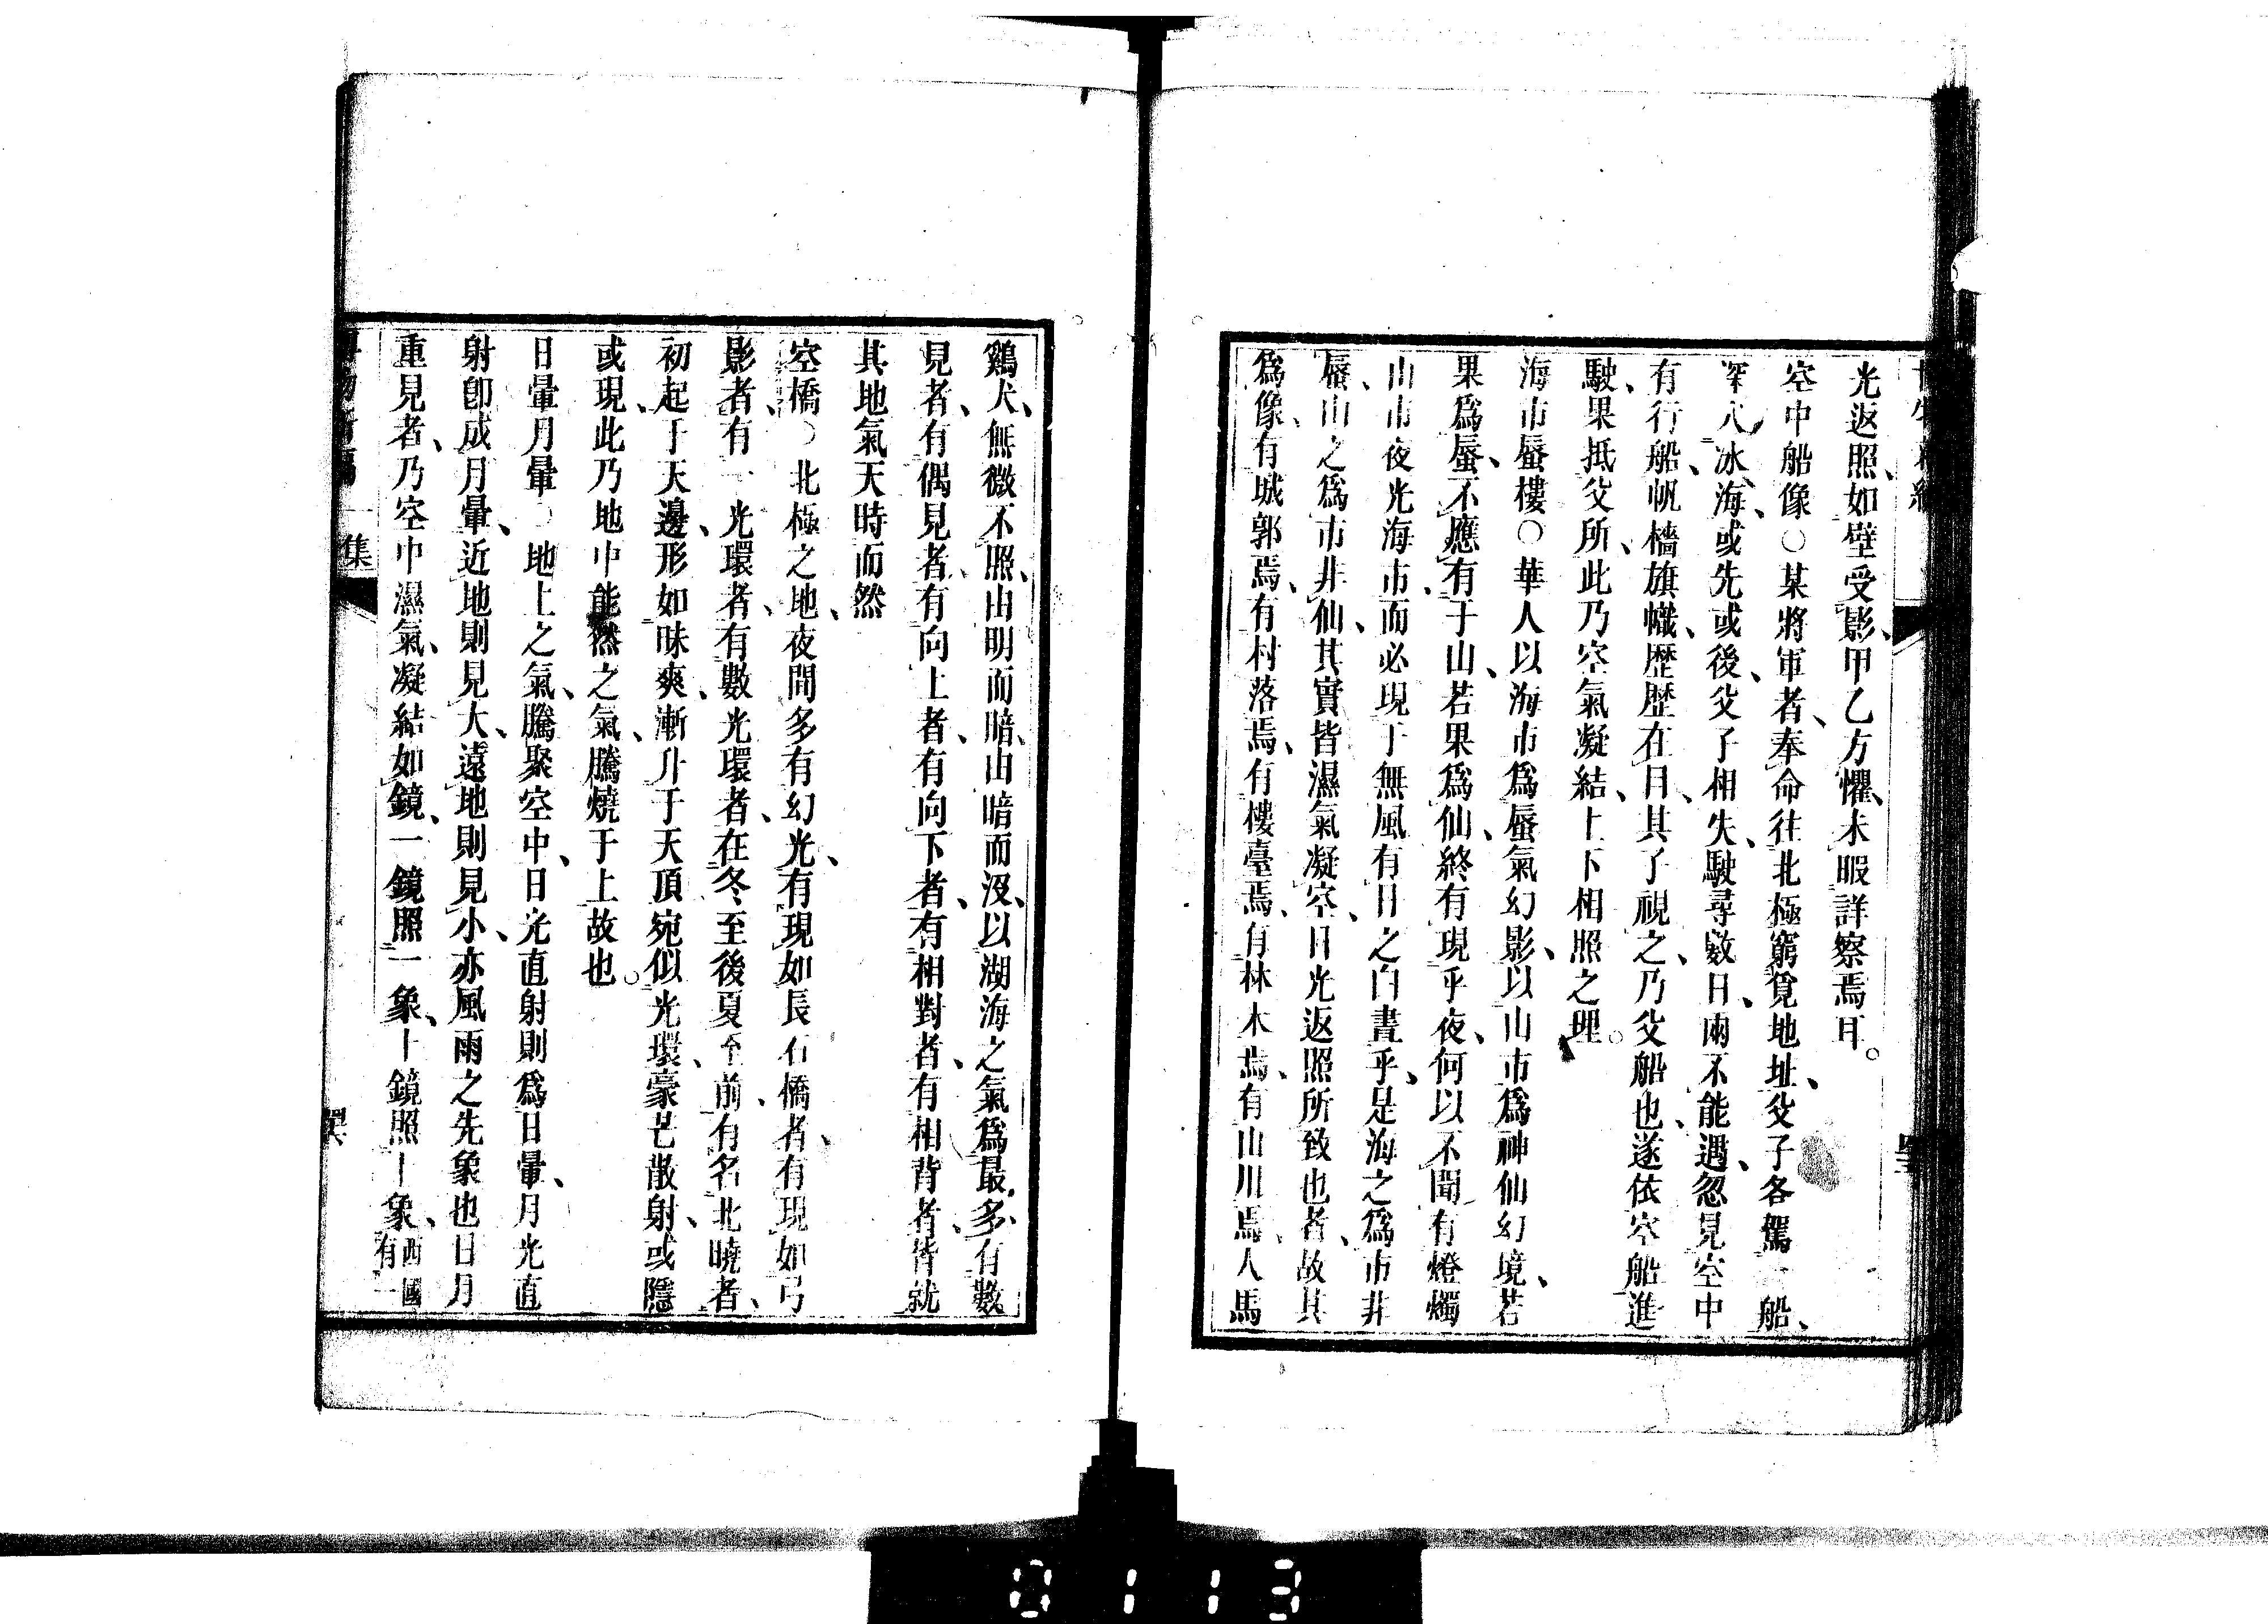 光返照、如壁受影、甲乙方懼、未暇詳察焉耳。
空中船像○某將軍者、奉命往北極窮覓地址、父子各駕一船、
深入冰海、或先或後、父子相失、駛尋數日、兩不能遇、忽見空中
有行船、帆檣旗幟、歷歷在目、其子視之、乃父船也、遂依空船進
駛、果抵父所、此乃空氣凝結、上下相照之理。
海市蜃樓○華人以海市爲蜃氣幻影、以山市爲神仙幻境、若
果爲蜃、不應有于山、若果爲仙、終有現乎夜、何以不聞有燈燭
山市夜光海市、而必現于無風有日之白晝乎、是海之爲市非
蜃、山之爲市非仙、其實皆濕氣凝空、日光返照所致也者、故其
爲像、有城郭焉、有村落焉、有樓臺焉、有林木焉、有山川焉、人馬
鷄犬、無微不照、由明而暗、由暗而沒、以湖海之氣爲最多、有數
見者、有偶見者、有向上者、有向下者、有相對者、有相背者、皆就
其地氣天時而然
空橋○北極之地、夜間多有幻光、有現如長石橋者、有現如弓
影者、有一光環者、有數光環者、在冬至後夏至前、有名北曉者、
初起于天邊、形如昧爽、漸升于天頂宛似光環、豪芒散射、或隱
或現、此乃地中能燃之氣、騰燒于上故也。
日暈月暈○地上之氣、騰聚空中、日光直射則爲日暈、月光直
射卽成月暈、近地則見大、遠地則見小、亦風雨之先象也日月
重見者、乃空中濕氣、凝結如鏡、一鏡照一象、十鏡照十象、西國
有一
博物新編 一集